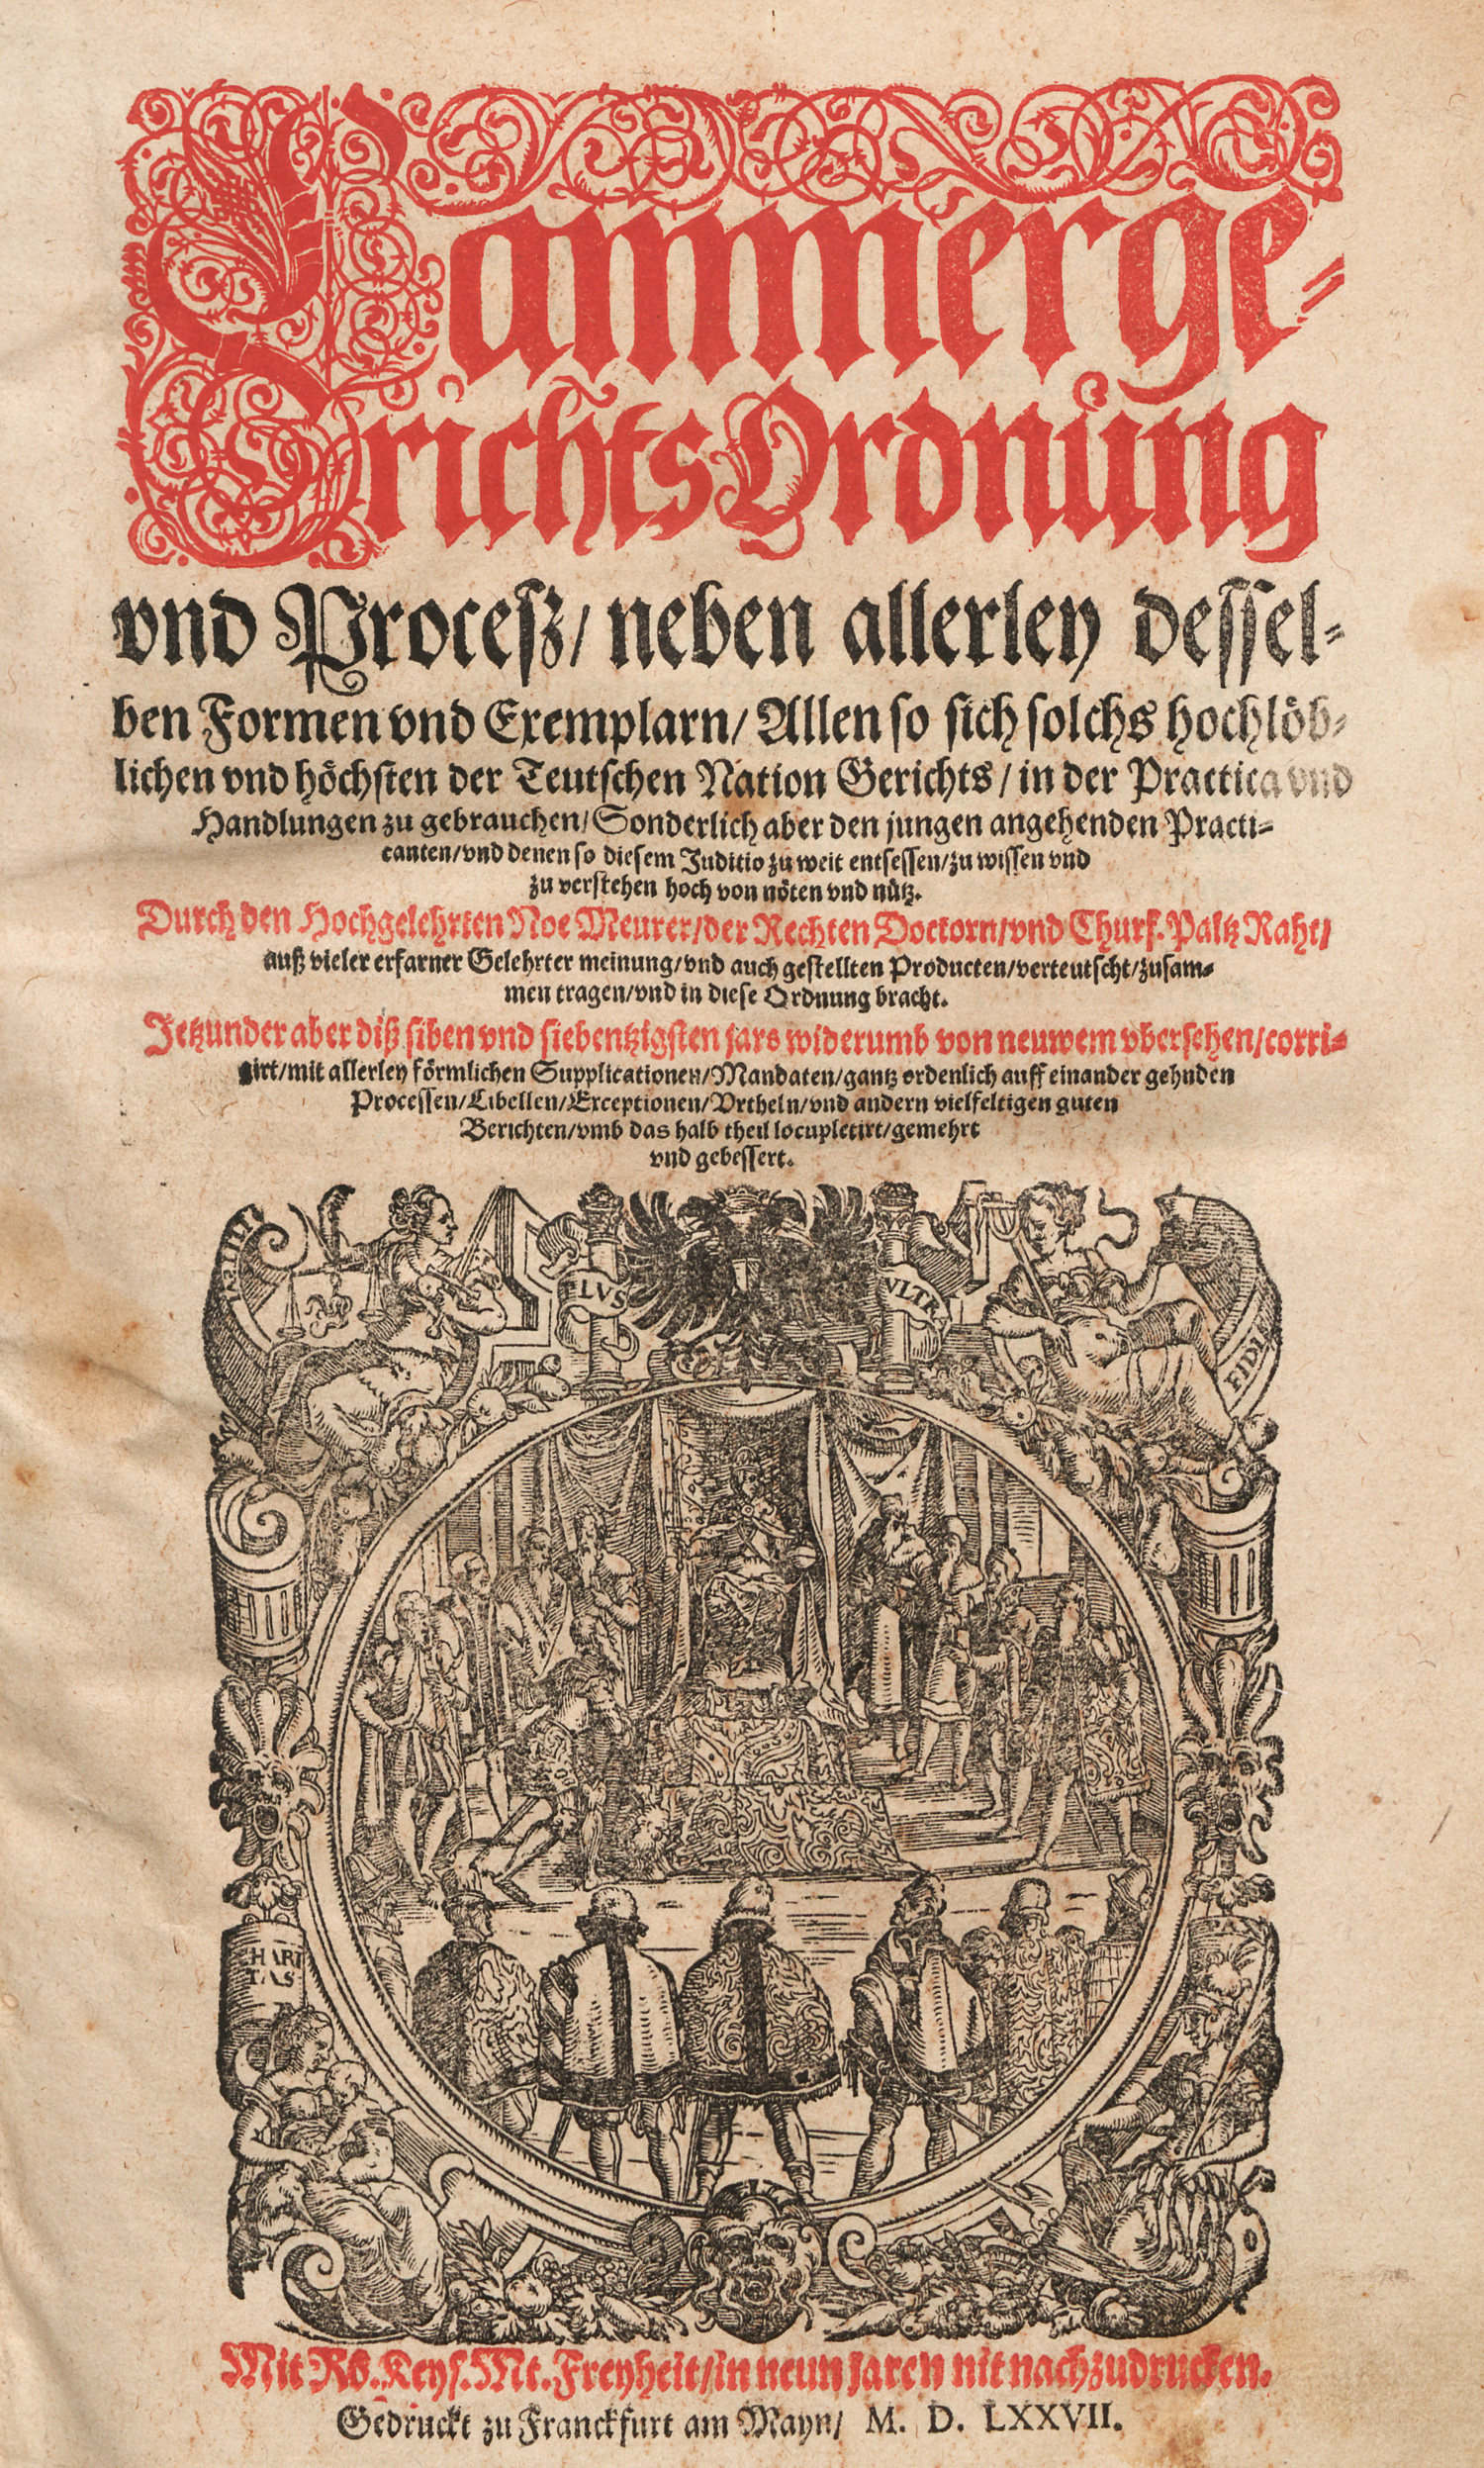 Cammerge-
richts Ordnung
vnd Proceß/ neben allerley dessel-
ben Formen vnd Exemplarn/ Allen so sich solchs hochlöb-
lichen vnd höchsten der Teutschen Nation Gerichts/ in der Practica vnd
Handlungen zu gebrauchen/ Sonderlich aber den jungen angehenden Practi-
canten/ vnd denen so diesem Juditio zu weit entsessen/ zu wissen vnd
zu verstehen hoch von nöten vnd nütz.
Durch den Hochgelehrten Noe Meurer/ der Rechten Doctorn/ vnd Churf. Paltz Raht/
auß vieler erfarner Gelehrter meinung/ vnd auch gestellten Producten/ verteutscht/ zusam-
men tragen/ vnd in diese Ordnung bracht.
Jetzunder aber diß siben vnd siebentzigsten jars widerumb von neuwem vbersehen/ corri-
girt/ mit allerley förmlichen Supplicationen/ Mandaten/ gantz ordenlich auff einander gehnden
Processen/ Libellen/ Exceptionen/ Vrtheln/ vnd andern vielfeltigen guten
Berichten/ vmb das halb theil locupletirt/ gemehrt
vnd gebessert.
PLVS
VLTR
FIDI
HARI
TAS
Mit Rö. Keys. Mt. Freyheit/ in neun jaren nit nachzudrucken.
Gedruckt zu Franckfurt am Mayn/ M. D. LXXVII.